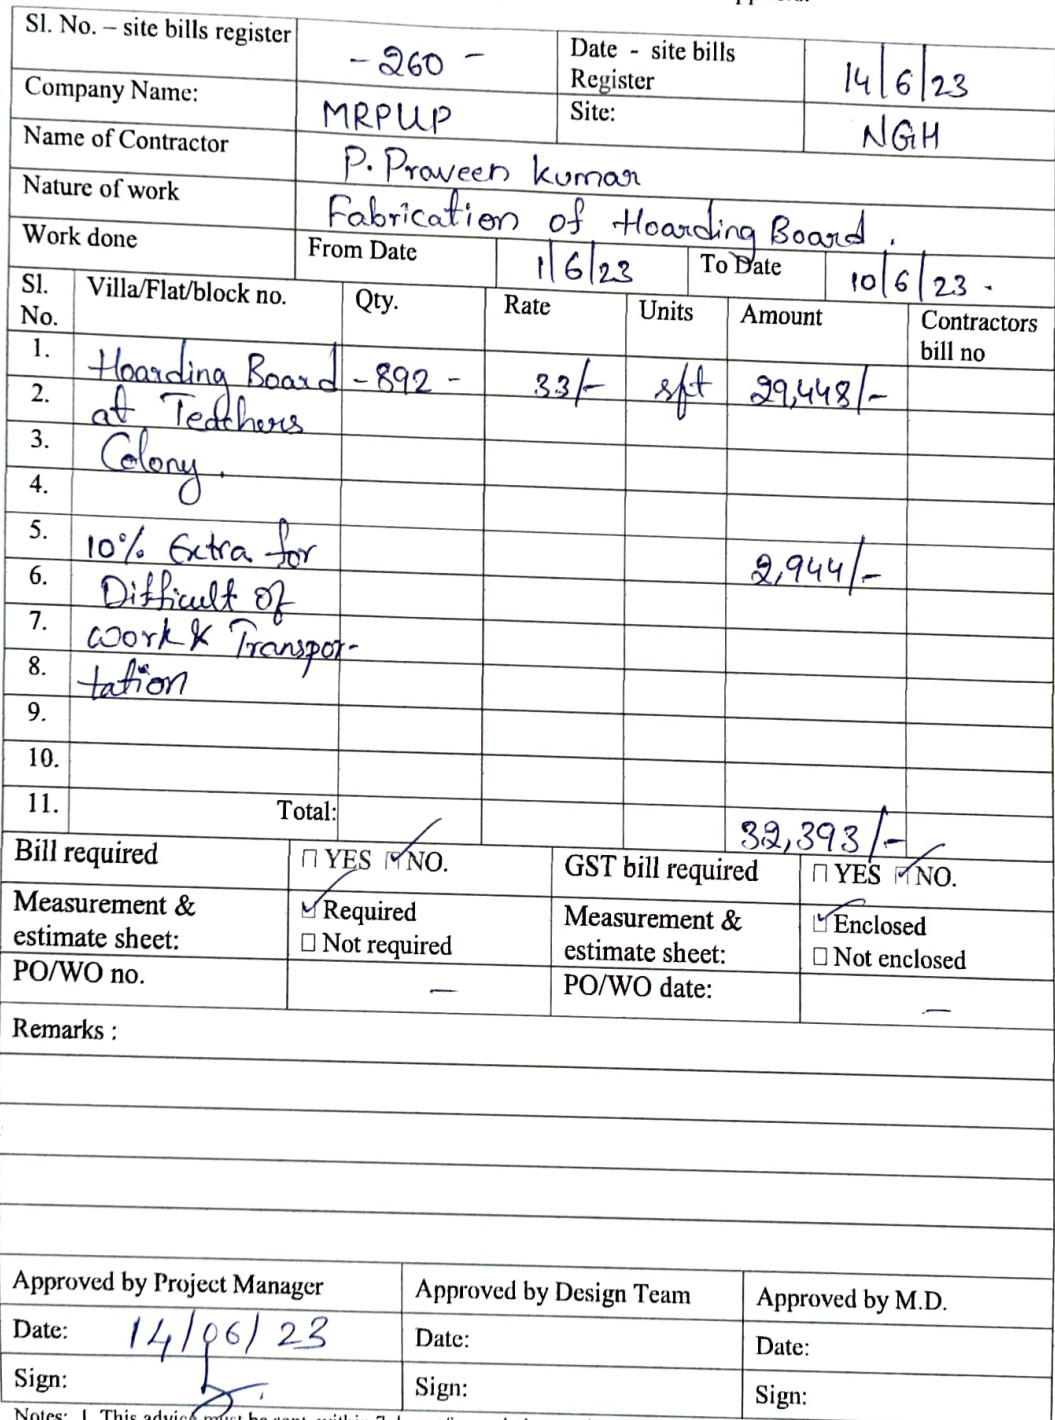 Sl. No. – site bills register
- 260 -
Date - site bills Register
14/6/23
Company Name:
MRPUP
Site:
NGH
Name of Contractor
P. Praveen Kumar
Nature of work
Fabrication of Hoarding Board.
Work done
From Date
1/6/23
To Date
10/6/23.
Sl. No.
Villa/Flat/block no.
Qty.
Rate
Units
Amount
Contractors bill no
1. Hoarding Board - 892 - 33/- sft 29,448/-
2. at Teachers
3. Colony.
4.
5. 10% Extra for 2,944/-
6. Difficult of
7. work & Transpor-
8. tation
9.
10.
11. Total: 32,393/-
Bill required
☐ YES ☑ NO.
GST bill required
☐ YES ☑ NO.
Measurement & estimate sheet:
☑ Required
☐ Not required
Measurement & estimate sheet:
☑ Enclosed
☐ Not enclosed
PO/WO no.
—
PO/WO date:
—
Remarks :
Approved by Project Manager
Approved by Design Team
Approved by M.D.
Date: 14/06/23
Date:
Date:
Sign:
Sign:
Sign:
Notes: 1. This advice must be sent within 7 days